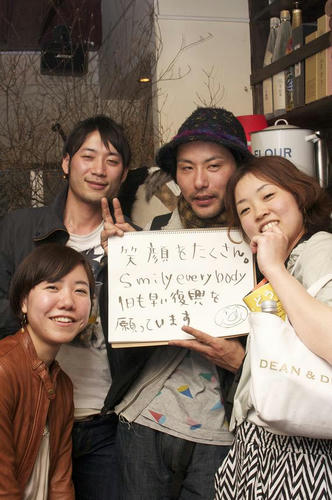 FLOUR
笑顔をたくさん。
Smily everybody
1日も早い復興を
願っています
DEAN & D